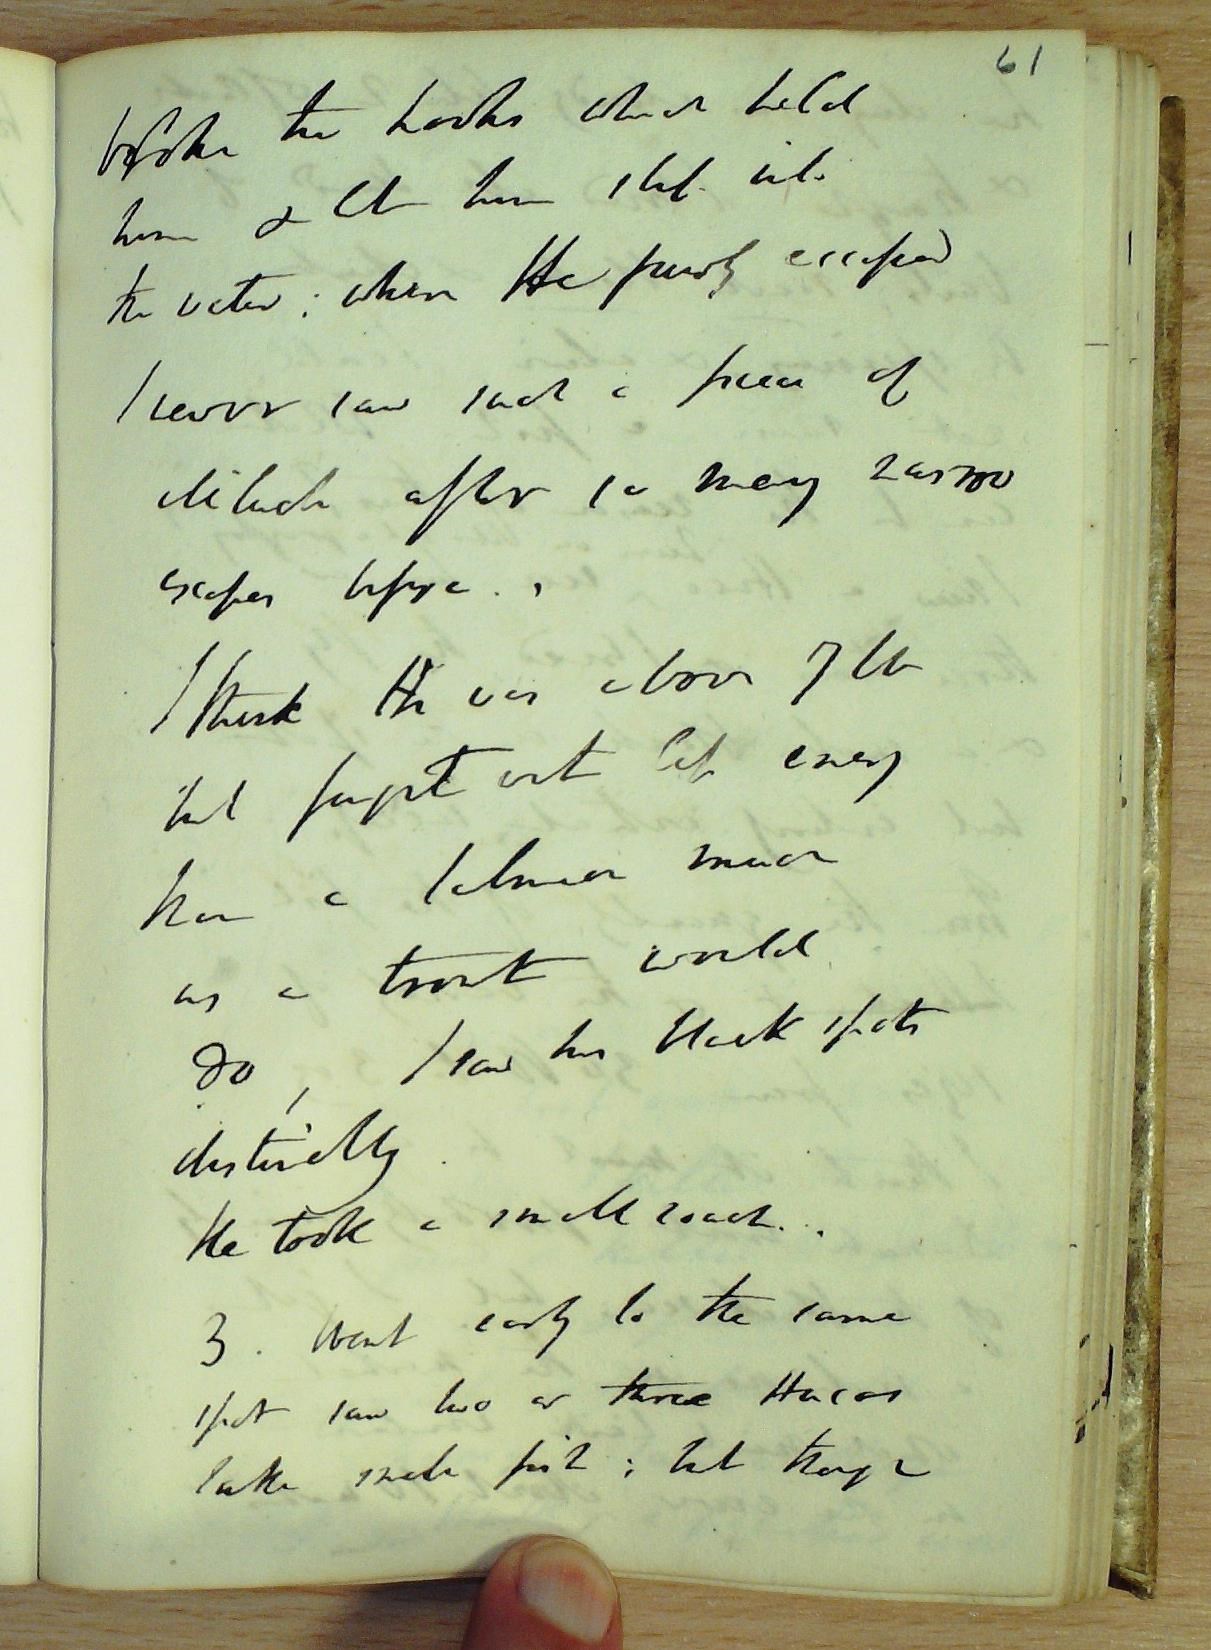 61
broke the hooks which held
him & let him slip into
the water; where He purely escaped
I never saw such a piece of
after so many narrow
escapes before.
I think He was above 7 lb
but fought with less energy
than a much
as a trout would
do, I saw his black spots
distinctly.
He took a small roach..
3. Went early to the same
spot saw two or three Hucos
take small fish; but though